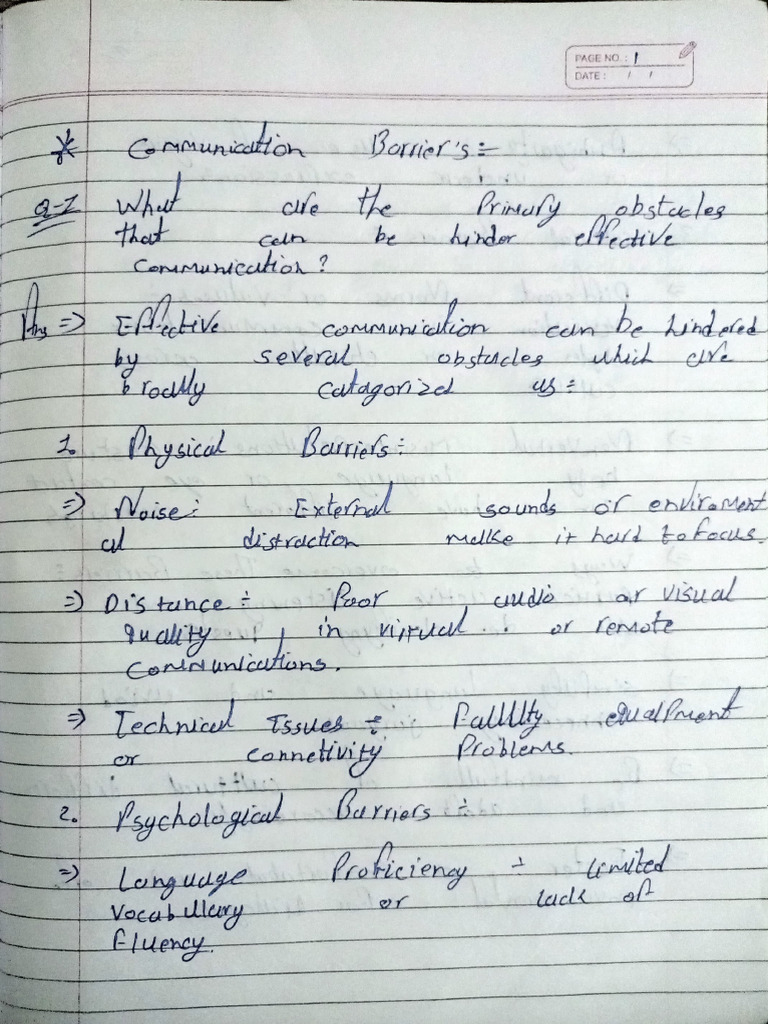 PAGE NO.: 1
DATE: / /
* Communication Barrier's :-
Q-1 What are the Primary obstacles
that can be hinder effective
communication?
Ans => Effective communication can be hindered
by several obstacles which are
broadly catagorized as :-
1. Physical Barriers :-
=> Noise : External sounds or enviroment
al distraction make it hard to focus.
=> Distance :- Poor audio or visual
quality , in virtual or remote
communications.
=> Technical Issues :- Faulty equipment
or connetivity Problems.
2. Psychological Barriers :-
=> Language Proficiency :- limited
vocabullary or lack of
fluency.